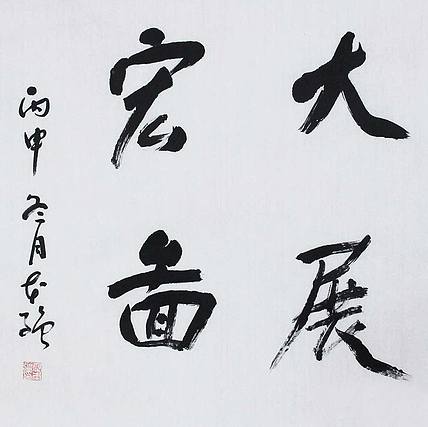 大展
宏图
丙申冬月本强